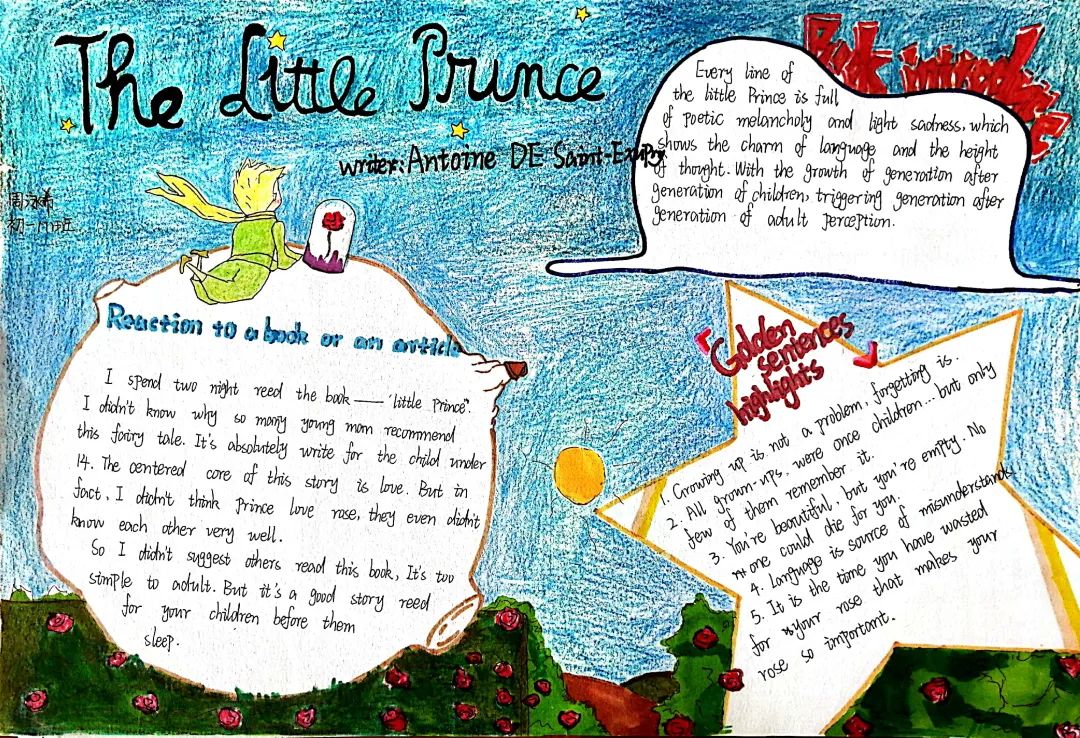 The Little Prince
writer: Antoine DE Saint-Exupry
周泳希
初一
Book introduce
Every line of
the little Prince is full
of poetic melancholy and light sadness, which
shows the charm of language and the height
of thought. With the growth of generation after
generation of children, triggering generation after
generation of adult perception.
Reaction to a book or an article
I spend two night reed the book——"little Prince".
I didn't know why so many young mom recommend
this fairy tale. It's absolutely write for the child under
14. The centered core of this story is love. But in
fact, I didn't think Prince love rose, they even didn't
know each other very well.
So I didn't suggest others read this book, It's too
simple to adult. But it's a good story reed
for your children before them
sleep.
Golden
sentences
highlights
1. Growing up is not a problem, forgetting is.
2. All grown-ups, were once children... but only
few of them remember it.
3. You're beautiful, but you're empty. No
one could die for you.
4. Language is source of misunderstands
5. It is the time you have wasted
for your rose that makes your
rose so important.